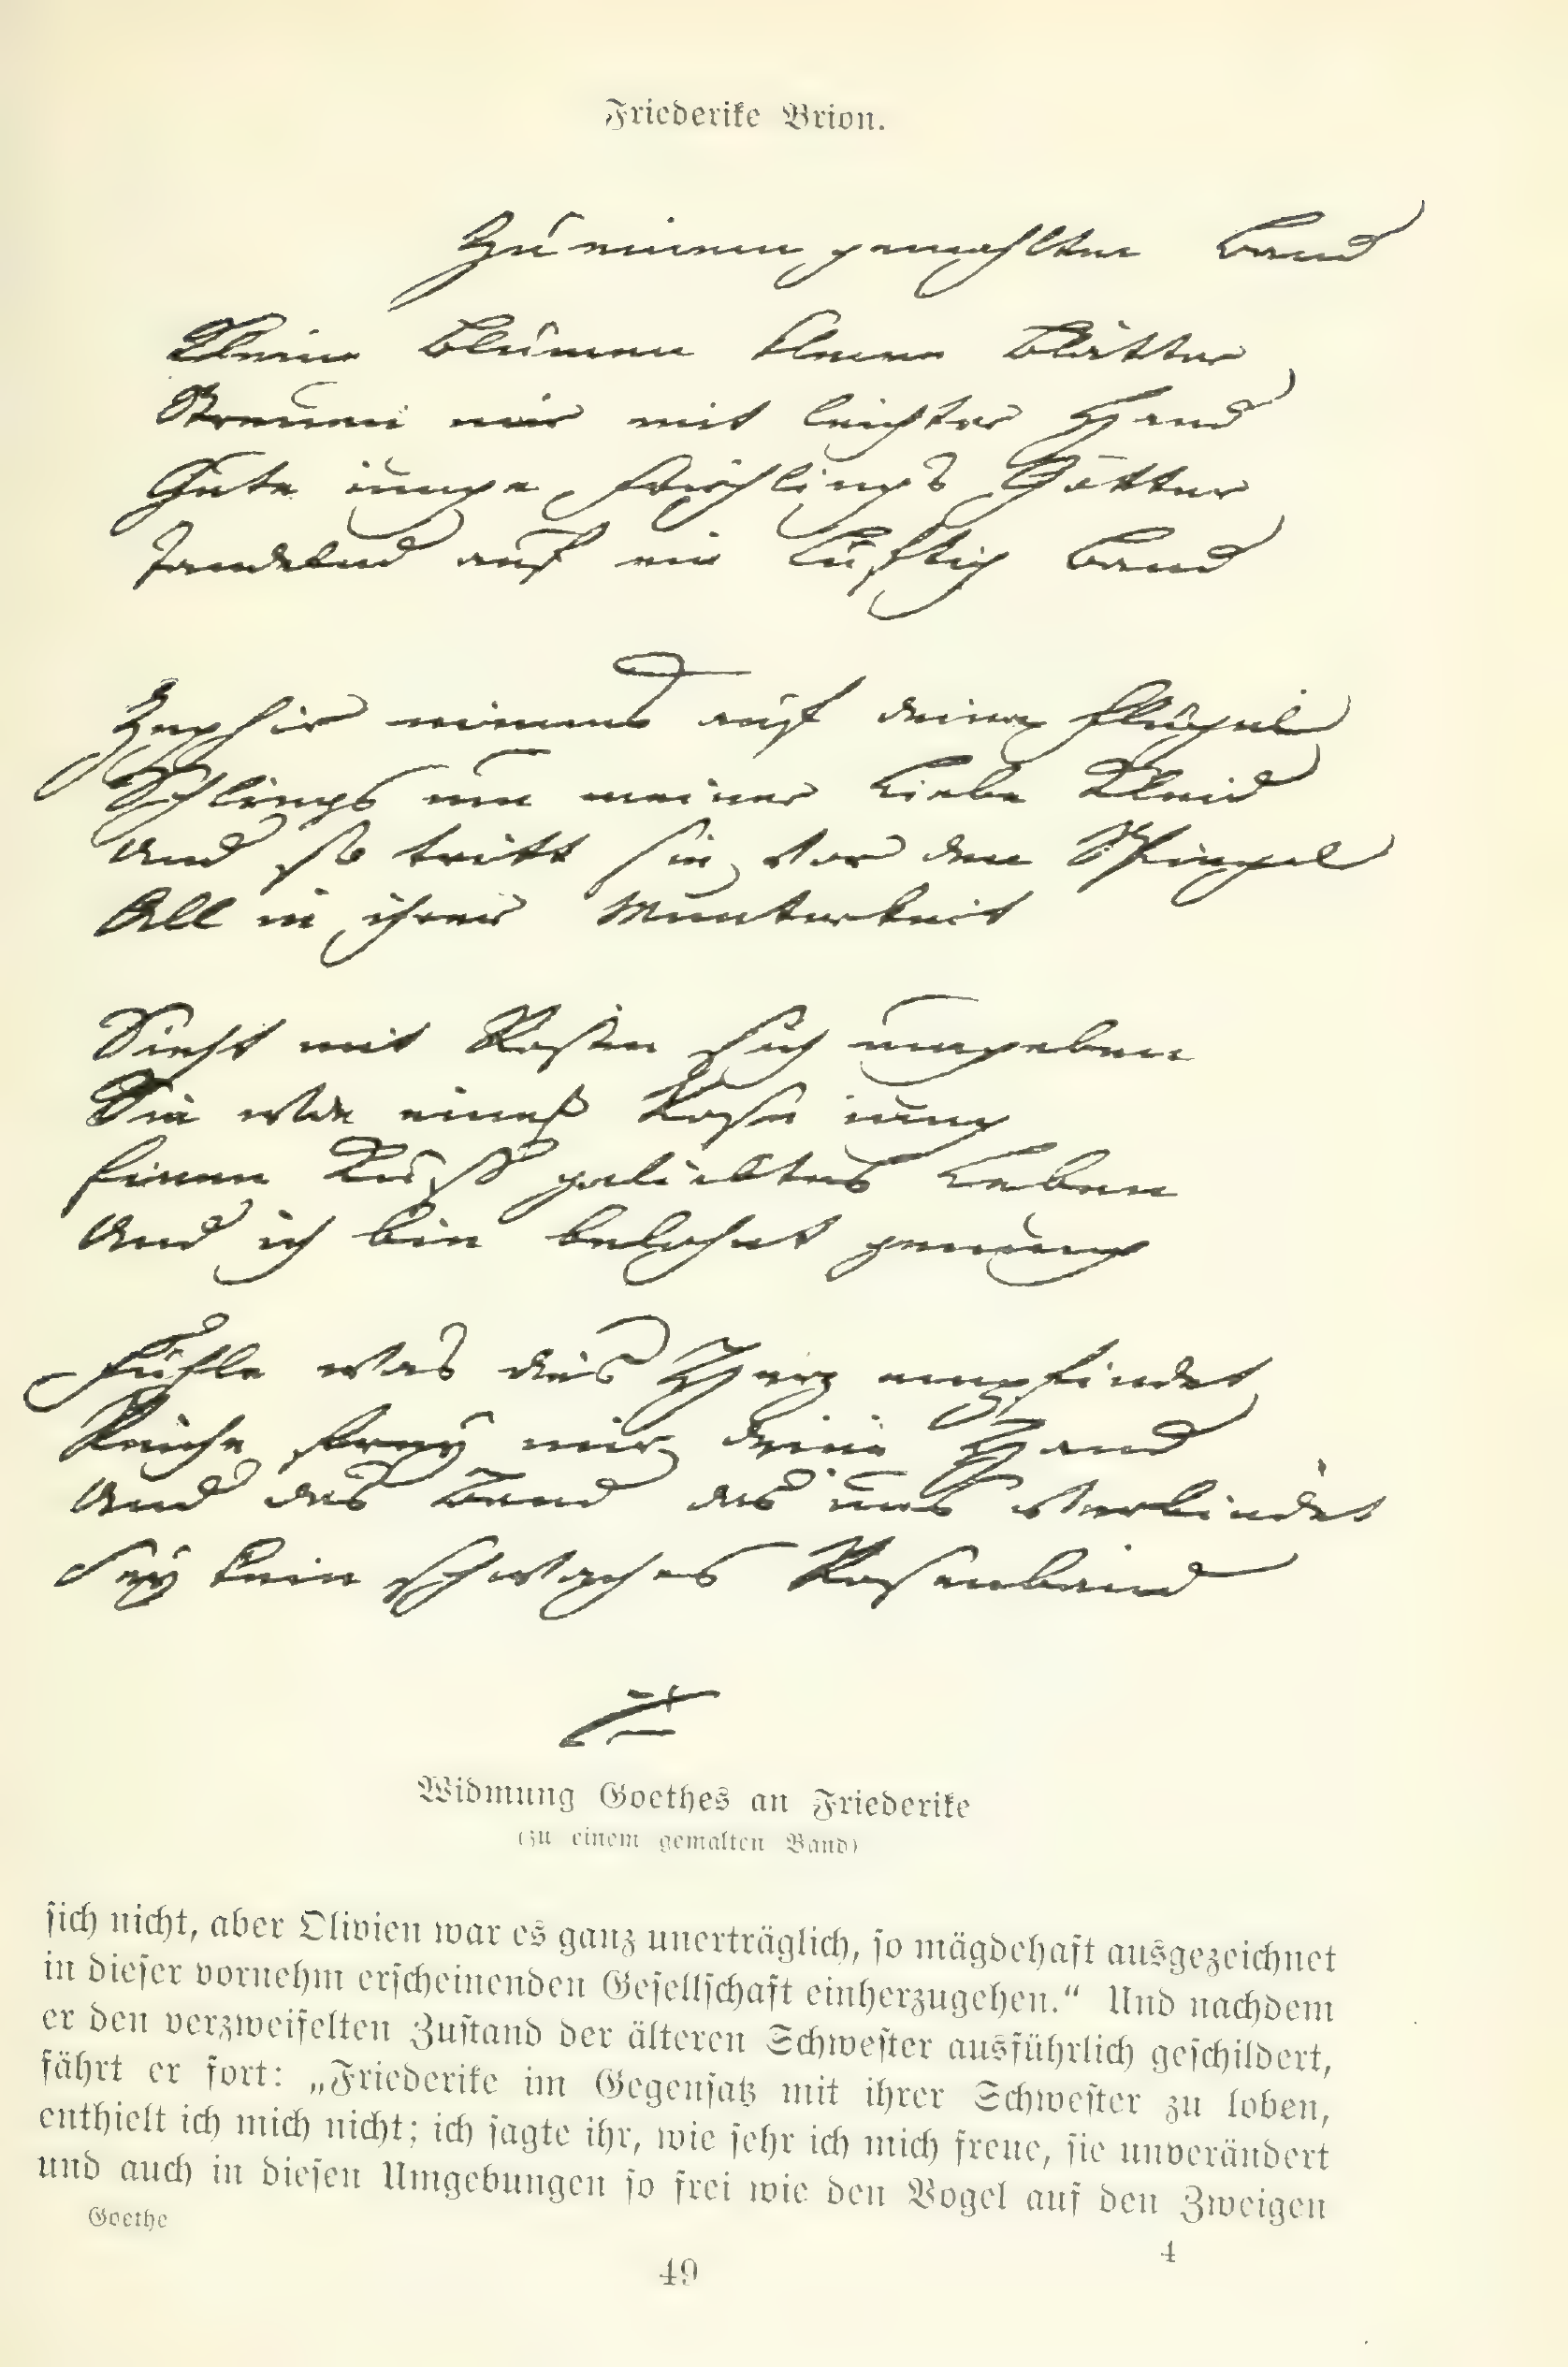 Friederike Brion.
Zu einem gemahlten Band
Kleine Blumen kleine Blätter
Streuen mir mit leichter Hand
Gute iunge Frühlings Götter
Tandelnd auf ein lüftig Band
Zephir nimms auf deine Flügel
Schlings um meiner Liebe Kleid
Und so tritt sie vor den Spiegel
All in ihrer Munterkeit
Sieht mit Rosen sich umgeben
Sie wie eine Rose iung
Einen Kuß geliebtes Leben
Und ich bin belohnt genung
Fühle was dies Herz empfindet
Reiche frey mir deine Hand
Und das Band das uns verbindet
Sey kein schwaches Rosenband
Widmung Goethes an Friederike
(zu einem gemalten Band)
sich nicht, aber Olivien war es ganz unerträglich, so mägdehaft ausgezeichnet
in dieser vornehm erscheinenden Gesellschaft einherzugehen.“ Und nachdem
er den verzweifelten Zustand der älteren Schwester ausführlich geschildert,
fährt er fort: „Friederike im Gegensatz mit ihrer Schwester zu loben,
enthielt ich mich nicht; ich sagte ihr, wie sehr ich mich freue, sie unverändert
und auch in diesen Umgebungen so frei wie den Vogel auf den Zweigen
Goethe
4
49